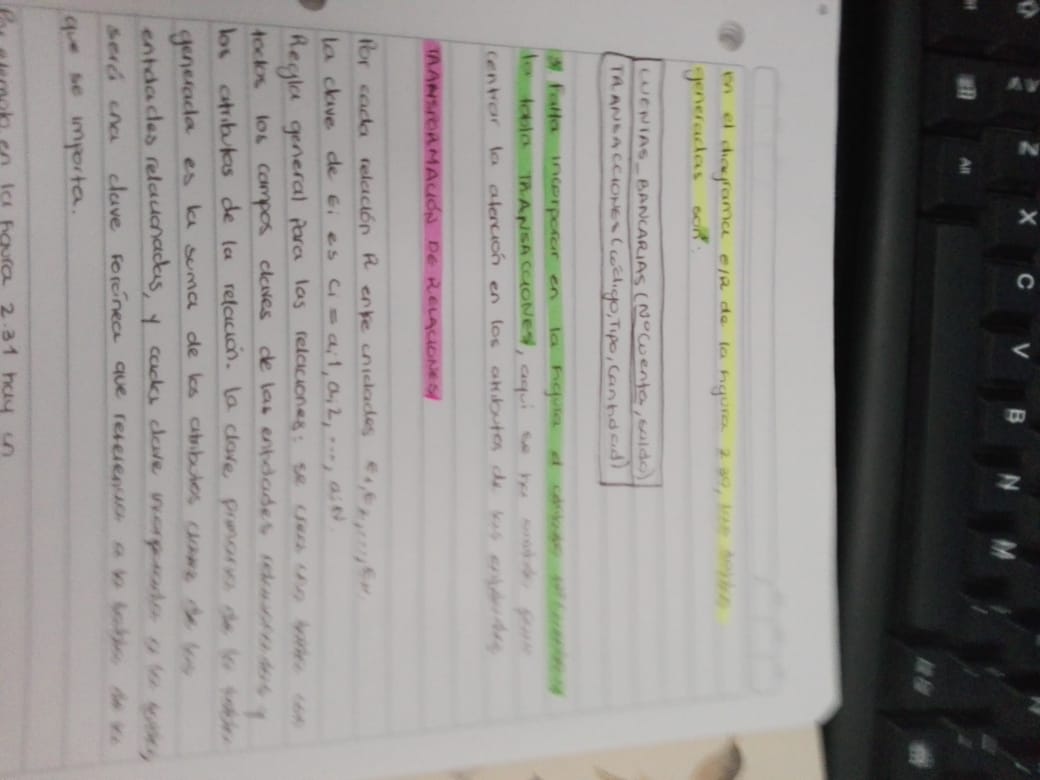 en el diagrama e/R de la figura 2.39, las tablas
generadas son:
CUENTAS_BANCARIAS (NºCuenta, saldo)
TRANSACCIONES (código, Tipo, Cantidad)
Falta incorporar en la figura el
la tabla TRANSACCIONES, aquí se ha
centrar la atención en los atributos de las entidades
TRANSFORMACIÓN DE RELACIONES
Por cada relación R entre entidades e1, e2, ..., eN.
la clave de Ei es Ci = ai1, ai2, ..., aiN.
Regla general para las relaciones: se crea una tabla con
todos los campos claves de las entidades relacionadas y
los atributos de la relación. la clave primaria de la tabla
generada es la suma de los atributos claves de las
entidades relacionadas, y cada clave incorporada a la tabla,
será una clave Foránea que referencia a la tabla de la
que se importa.
Por ejemplo, en la figura 2.31 hay un
Alt
Z
X
C
V
B
N
M